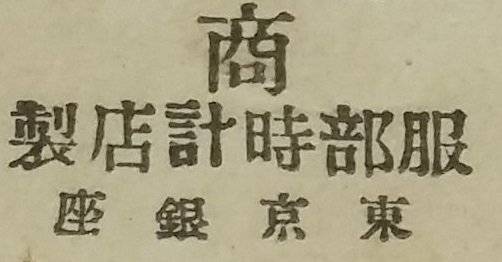 商
服部時計店製
東京銀座